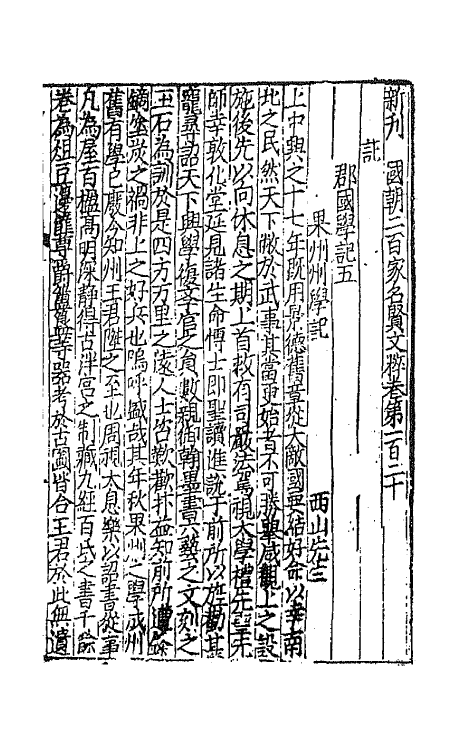 新刊 國朝二百家名賢文粹卷第一百二十
記
郡國學記五
果州州學記 西山先生
上中興之十七年既用景德舊章從大敵國要結好命以幸南
北之民然天下敝於武事其當更始者不可勝舉咸觀上之設
施後先以向休息之期上首敕有司嚴法駕視大學禮先聖先
師幸敦化堂延見諸生命博士即聖讀進說于前所以旌勸甚
寵尋詔天下興學復孝官之員數親御翰墨書六藝之文刻之
玉石為訓於是四方万里之遠人士皆歡歡抃並知前所遭鋒
鏑塗炭之禍非上之好兵也嗚呼盛哉其年秋果州之學成州
舊有學已廢今知州王君陞之至也周視太息樂以詔書從事
凡為屋百楹高明深靜得古泮宫之制藏九經百氏之書千餘
卷為俎豆籩篚尊爵簠簋等器考於古圖皆合王君於此無遺